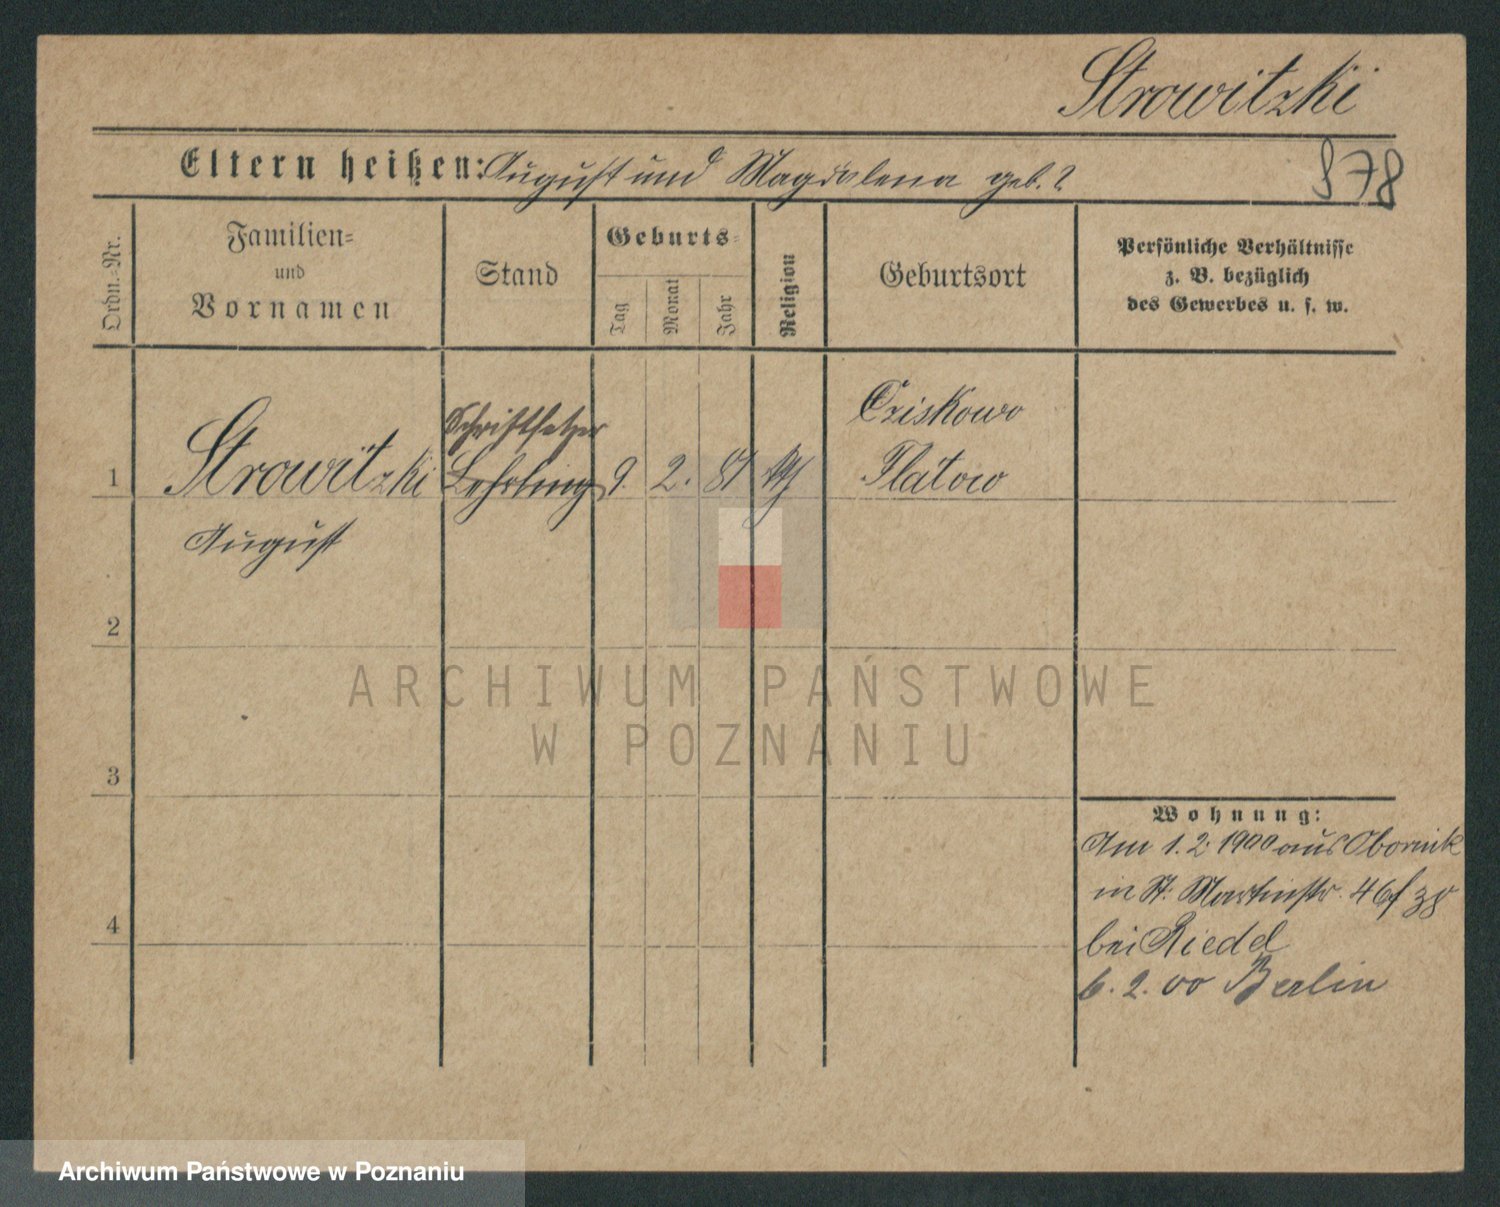 Strowitzki
Eltern heißen: August und Magdalena geb. ?
878
Ordn.-Nr.
Familien-
und
Vornamen
Stand
Geburts-
Tag
Monat
Jahr
Religion
Geburtsort
Persönliche Verhältnisse
z. B. bezüglich
des Gewerbes u. s. w.
1
Strowitzki
August
Schriftsetzer
Lehrling
9. 2. 81
Cziskowo
Flatow
2
ARCHIWUM PAŃSTWOWE
W POZNANIU
3
Wohnung:
Am 1. 2. 1900 aus Obornik
in St. Martinstr. 46
bei Riedel
6. 2. 00 Berlin
4
Archiwum Państwowe w Poznaniu